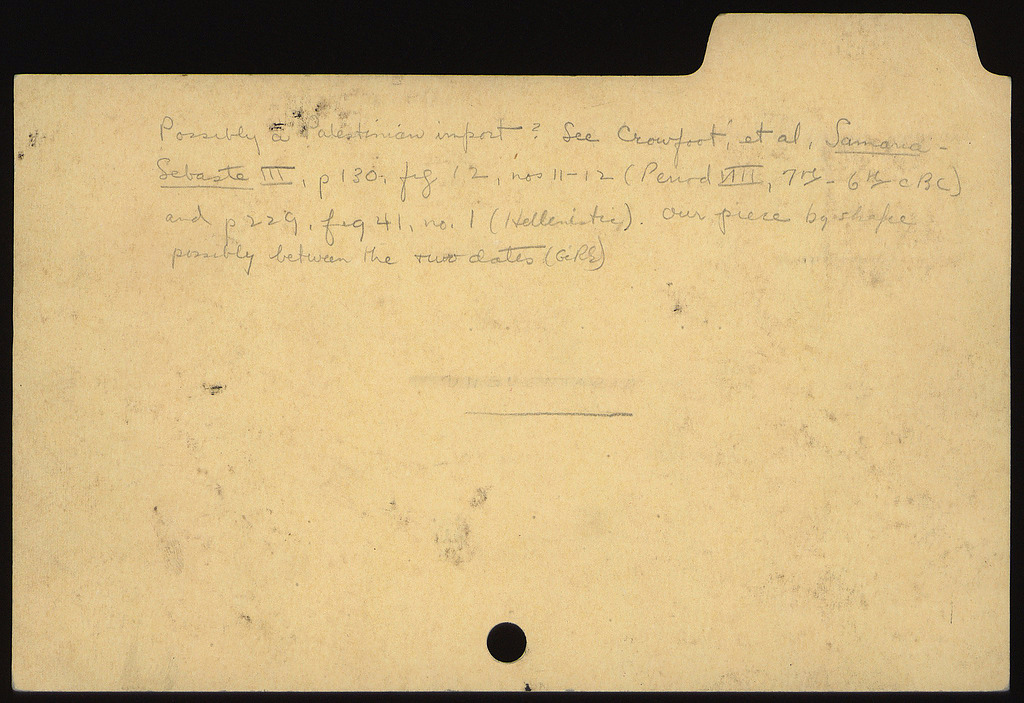 Possibly a Palestinian import? See Crowfoot, et al, Samaria-
Sebaste III, p 130, fig 12, nos 11-12 (Period VIII, 7th - 6th c BC)
and p 229, fig 41, no. 1 (Hellenistic). Our piece by shape
possibly between the two dates (GRE)